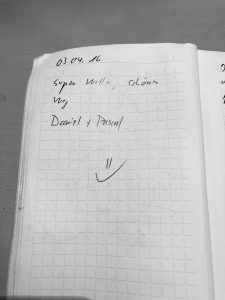 03.04.16
super Hütte, schöner
Weg
Daniel + Pascal